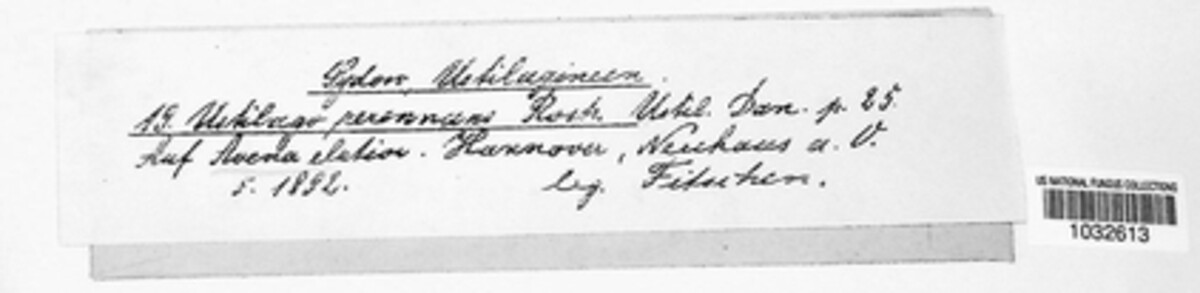 Sydow, Ustilagineen.
19. Ustilago perennans Rostr. Ustil. Dan. p. 25.
Auf Avena elatior. Hannover, Neuhaus a. O.
5. 1892. leg. Fitschen.
US NATIONAL FUNGUS COLLECTIONS
1032613